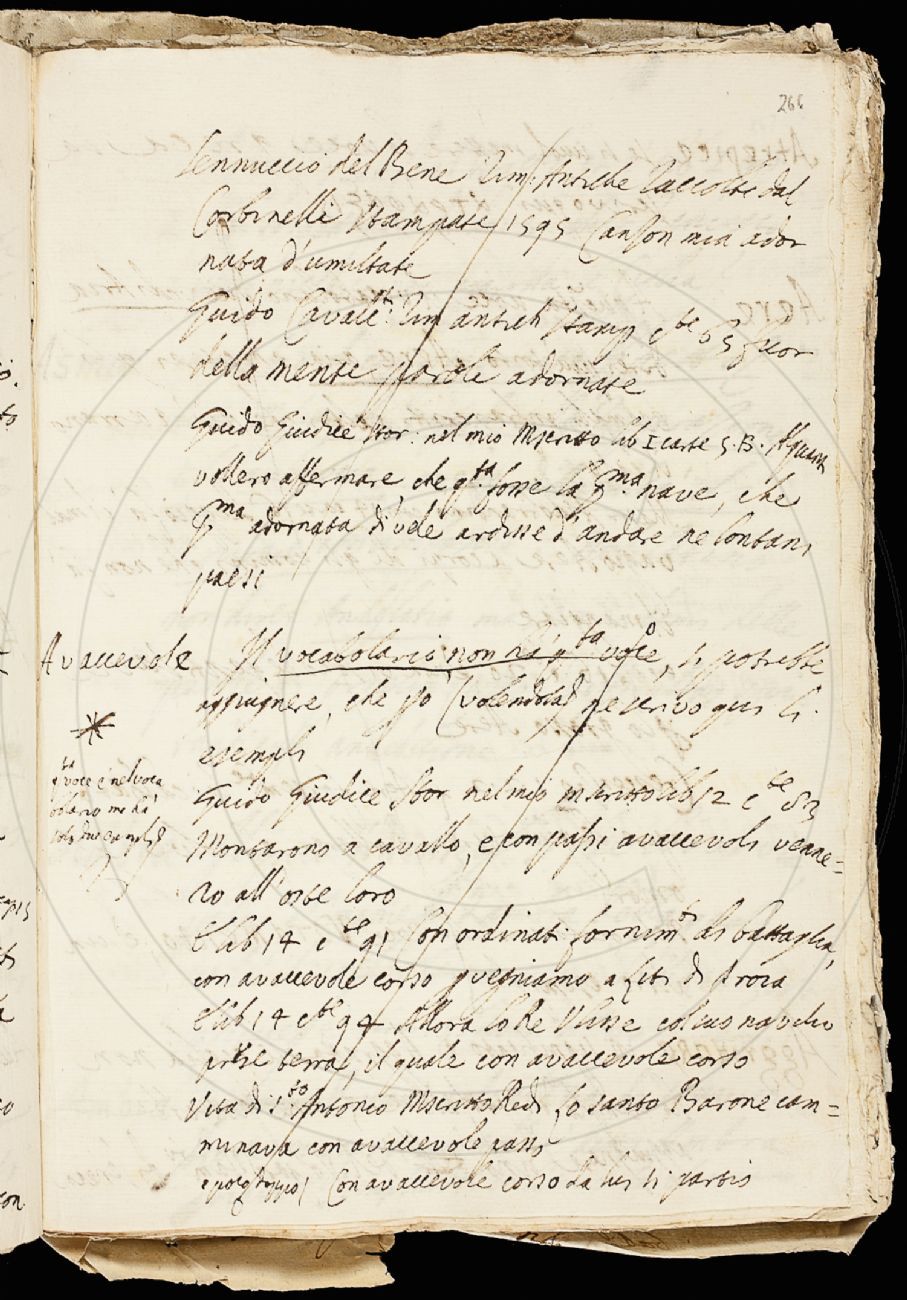 266
Sennuccio del Bene Rim: Antiche Raccolte dal
Corbinelli stampate 1595 Canson mia ador
nata d'umiltate
Guido Cavalcti: Rim antich stamp cte 65 fuor
della mente parole adornate
Guido Giudice stor: nel mio Mscritto lib I carte 5.B. Alquanti
vollero affermare, che qta. fosse la pma. nave, che
pma adornata di vele ardisse d'andare ne lontani
paesi
Avaccevole Il vocabolario non hà qta voce, si potrebbe
aggiugnere, che però (volendola) ne scrivo qui li
esempli
*
qta voce è nel voca
bolario ma hà
solo due esempli
Guido Giudice stor nel mio mscritto lib 12 cte 83
Montarono a cavallo, e con passi avaccevoli venne=
ro all'oste loro
E lib 14 cte 91 Con ordinati fornimti di battaglia,
con avaccevole corso pvegniamo a liti di Troia
E lib 14 cte 94 Allora lo Re Ulisse col suo navilio
prese terra, il quale con avaccevole corso
Vita di S.to Antonio Mscritto Redi Lo santo Barone cam=
minava con avaccevole passo
e poco doppo) Con avaccevole corso da lui si partio